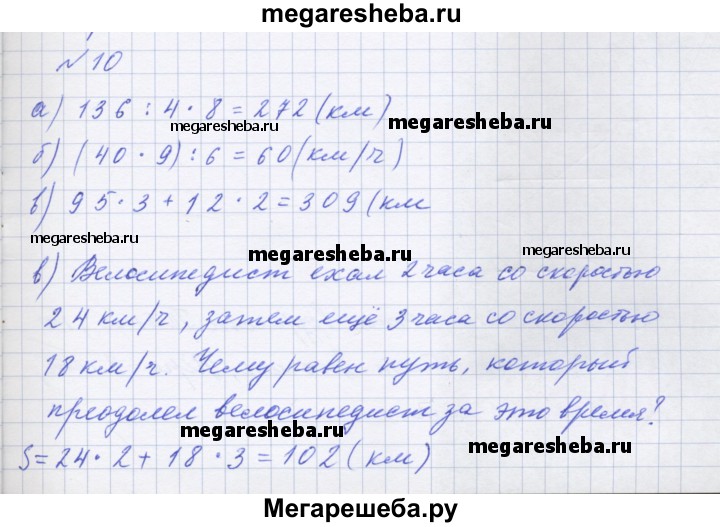 megaresheba.ru
№10
а) 136 : 4 · 8 = 272 (км)
megaresheba.ru
megaresheba.ru
б) (40 · 9) : 6 = 60 (км/ч)
в) 95 · 3 + 12 · 2 = 309 (км
megaresheba.ru
megaresheba.ru
megaresheba.ru
в) Велосипедист ехал 2 часа со скоростью
24 км/ч, затем ещё 3 часа со скоростью
18 км/ч. Чему равен путь, который
преодолел велосипедист за это время?
megaresheba.ru
megaresheba.ru
S = 24 · 2 + 18 · 3 = 102 (км)
Мегарешеба.ру